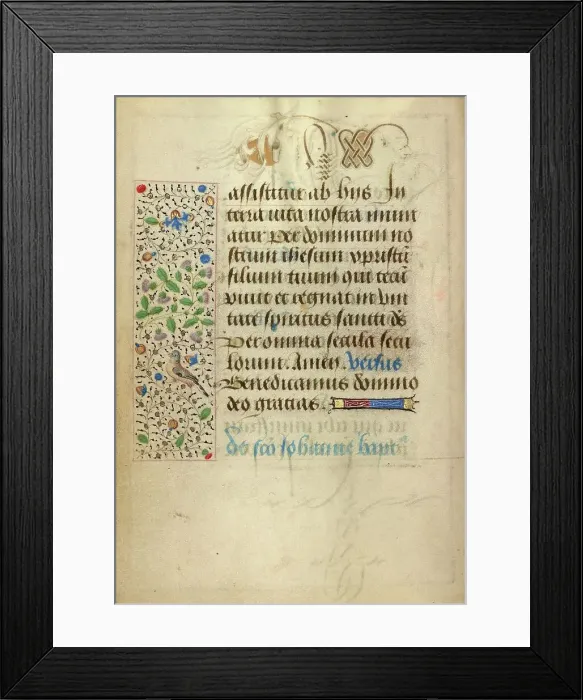 assistitur ab hijs In
terra uita nostra muni
atur Per dominum no
strum ihesum xpristū
filium tuum qui tecū
viuit et regnat in vni
tate spiritus sancti ds
Per omnia secula secu
lorum. Amen. Versus
Benedicamus domino
deo gracias.
De sco iohanne bapt